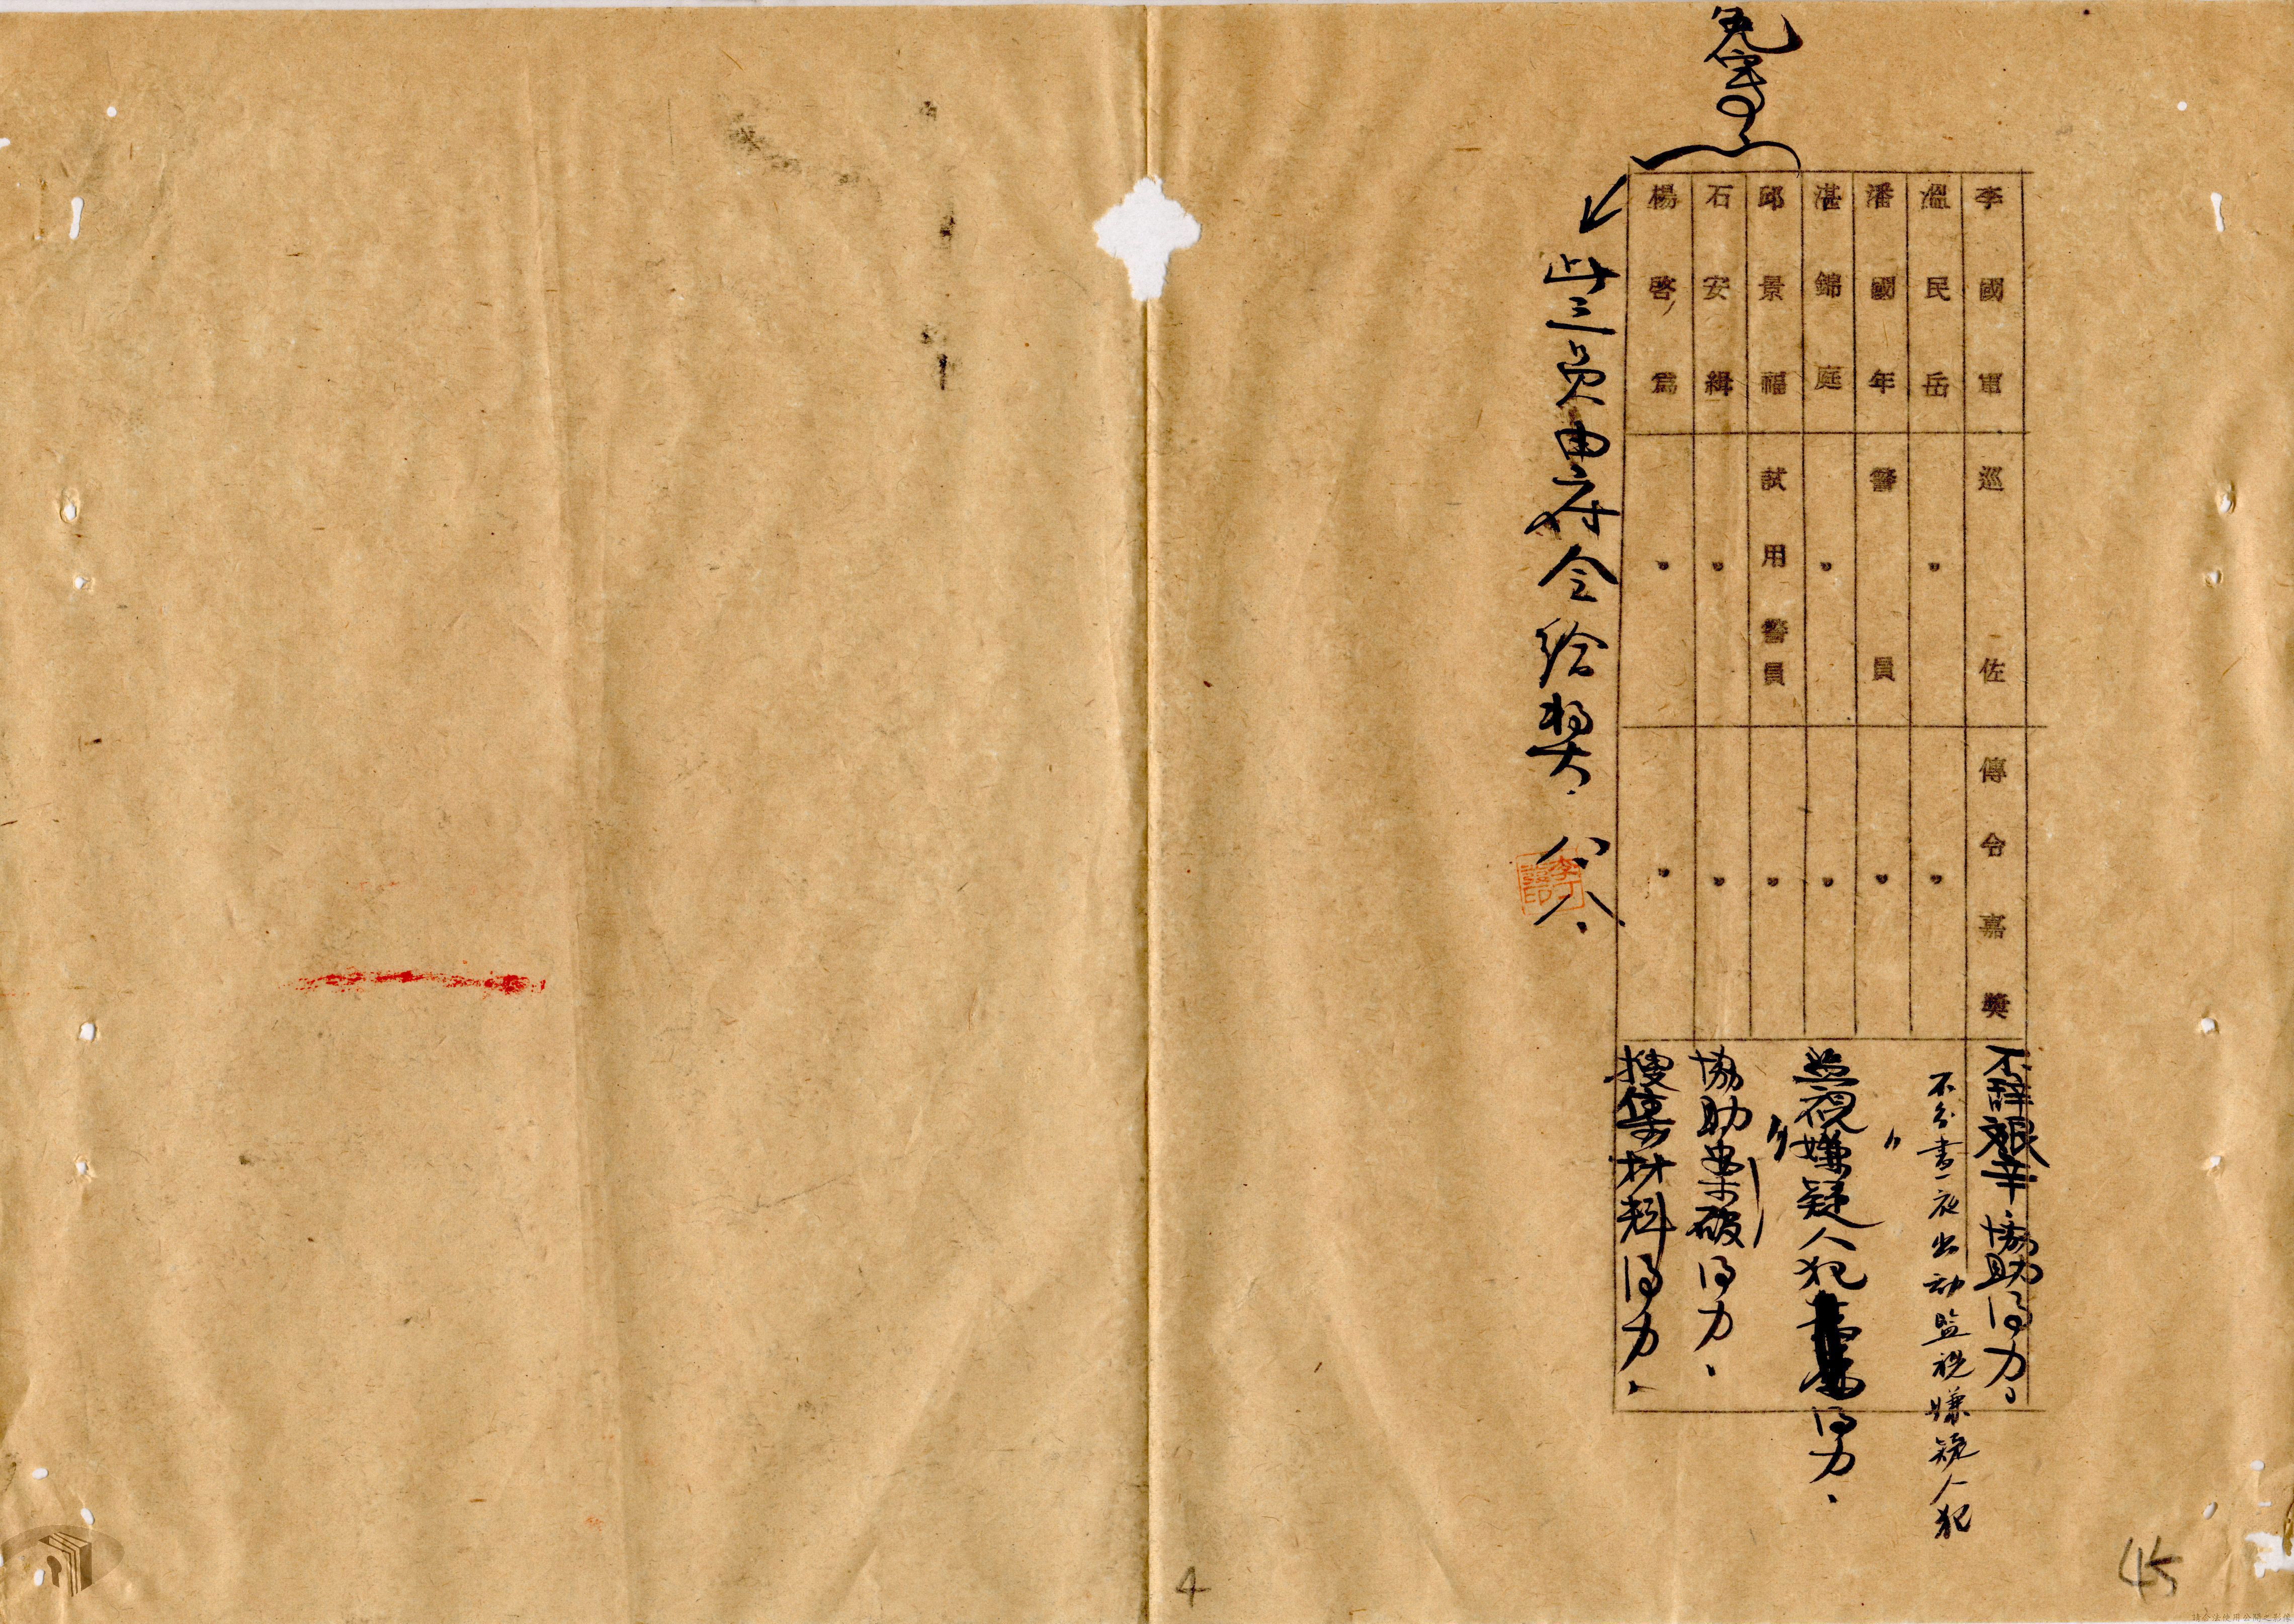 李國軍 巡佐 傳令嘉獎 不辭艱辛協助得力。
溫民岳 〃 〃 不分晝夜出動監視嫌疑人犯
潘國年 警員 〃 〃
湛錦庭 〃 〃 監視嫌疑人犯得力.
邱景福 試用警員 〃 〃
石安緝 〃 〃 協助案破得力.
楊啓爲 〃 〃 搜集材料得力.
此三員由府令給獎. 八.八.
4
45